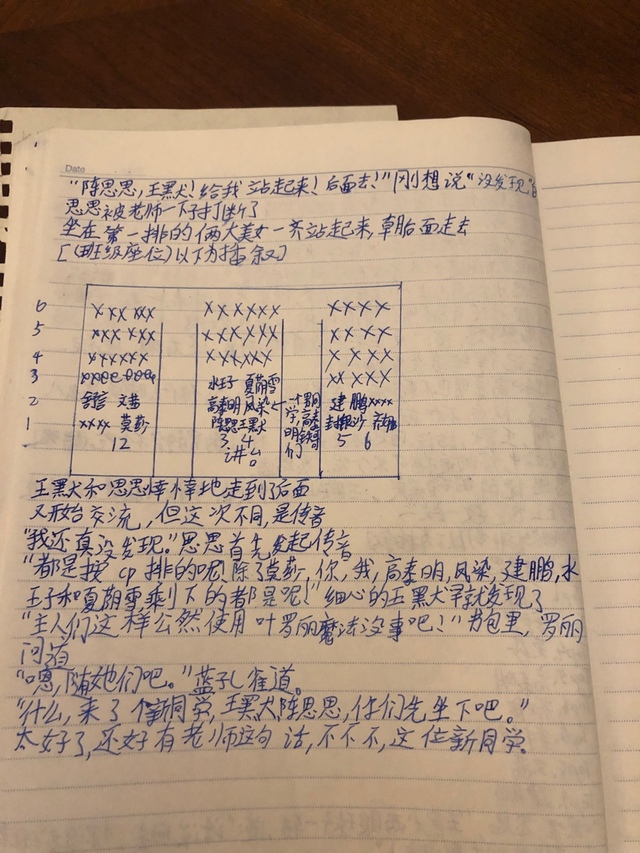 Date
"陈思思,王黑犬!给我站起来!后面去!"刚想说"没发现"
思思被老师一下子打断了
坐在第一排的俩大美女一齐站起来,朝后面走去
[(班级座位)以下为插叙]
6 xxx xxx xxxxxx xxxx
5 xxx xxx xxxxxx xxxx
4 xxxxxx xxxxxx xxxx
3 水王子 夏萌雪 xx xxx
2 舒言 文茜 高泰明 风染 建鹏 xxxx
1 xxxx 莫莎 陈思思王黑犬 封银沙
12 34 5 6
讲台
王黑犬和思思悻悻地走到了后面
又开始交流,但这次不同,是传音
"我还真没发现。"思思首先发起传音
"都是按cp排的呢!除了莫莎,你,我,高泰明,风染,建鹏,水
王子和夏萌雪剩下的都是呢!"细心的王黑犬早就发现了
"主人们这样公然使用叶罗丽魔法没事吧!"书包里,罗丽
问道
"嗯,随她们吧。"蓝孔雀道。
"什么,来了个新同学,王黑犬陈思思,你们先坐下吧。"
太好了,还好有老师这句话,不不不,这位新同学。